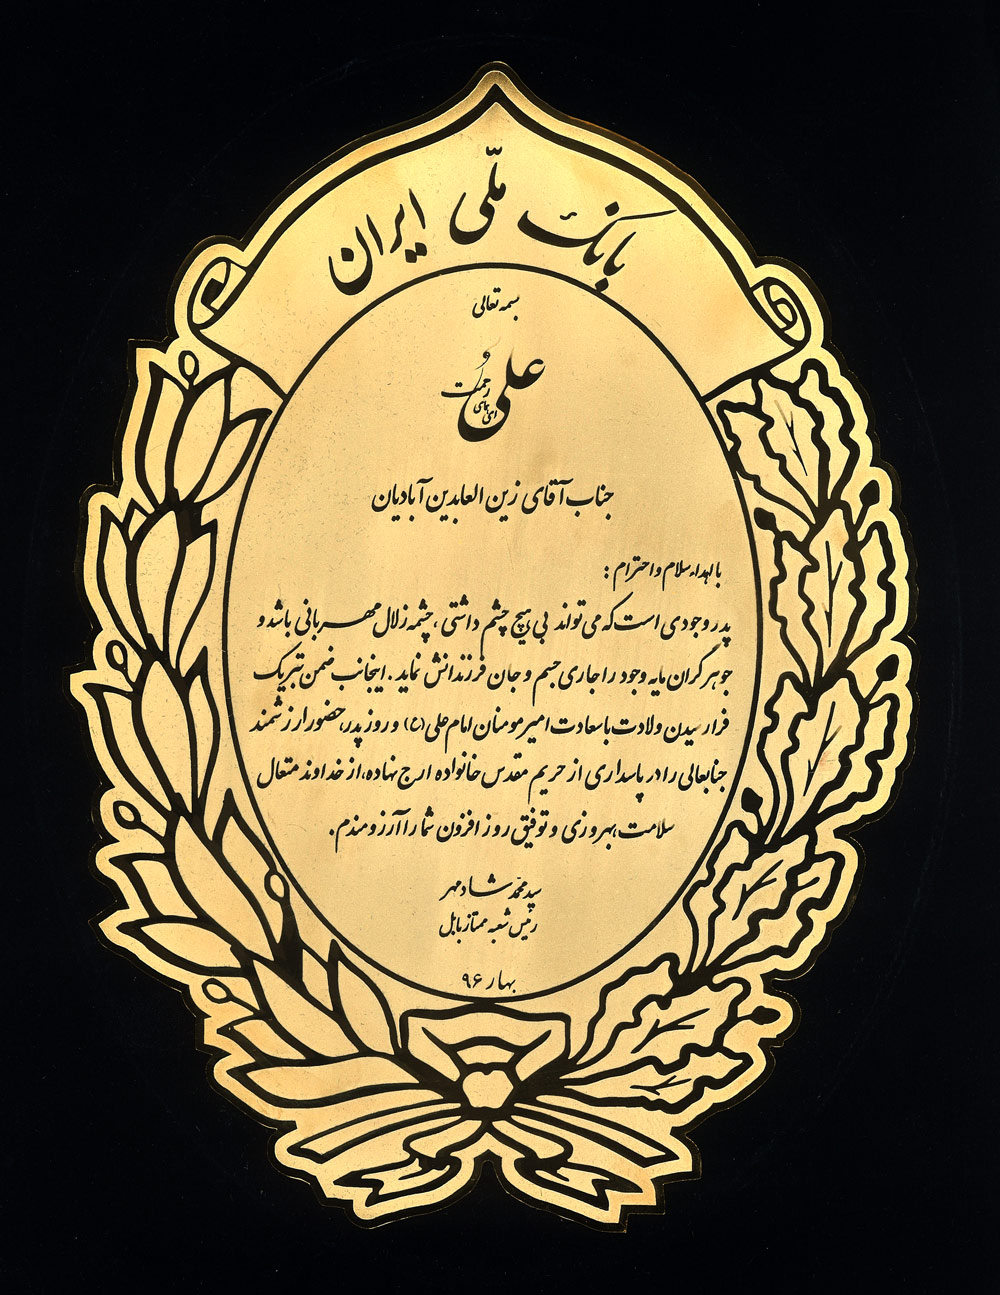 بانک ملّی ایران
بسمه تعالی
علی ای همای رحمت
جناب آقای زین العابدین آبادیان
با اهداء سلام و احترام :
پدر وجودی است که می تواند بی هیچ چشم داشتی ، چشمه زلال مهربانی باشد و
جوهر گران مایه وجود را جاری جسم و جان فرزندانش نماید . اینجانب ضمن تبریک
فرا رسیدن ولادت با سعادت امیر مومنان امام علی (ع) و روز پدر، حضور ارزشمند
جنابعالی را در پاسداری از حریم مقدس خانواده ارج نهاده، از خداوند متعال
سلامت، بهروزی و توفیق روز افزون شما را آرزومندم.
سید محمد شادمهر
رئیس شعبه ممتاز بابل
بهار ۹۶